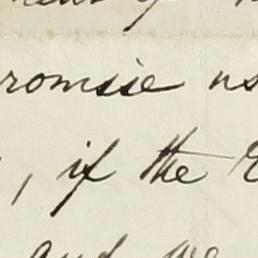 romise us
, if the E
and we